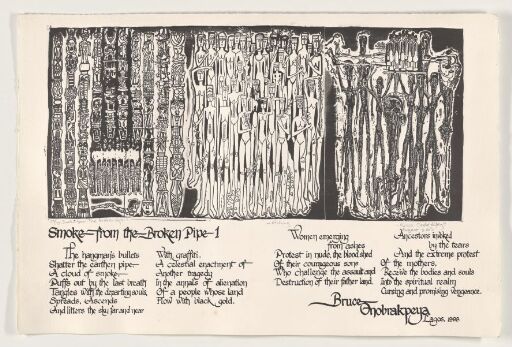 Smoke from the Broken Pipe-1
The hangman's bullets
Shatter the earthen pipe
A cloud of smoke
Puffs out by the last breath
Tangles with the departing souls,
Spreads, Ascends
And litters the sky far and near
With graffiti.
A celestial enactment of
Another tragedy
In the annals of alienation
Of a people whose land
Flow with black gold.
Women emerging
from ashes
Protest in nude, the blood shed
Of their courageous son
Who challenge the assault and
Destruction of their father land.
Ancestors invoked
by the tears
And the extreme protest
Of the mothers,
Receive the bodies and souls
Into the spiritual realm
Cursing and promising vengeance.
Bruce
Onobrakpeya,
Lagos, 1998